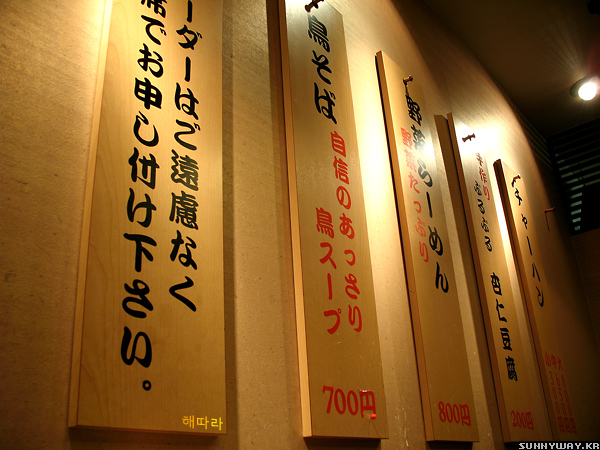 ーダーはご遠慮なく
席でお申し付け下さい。
鳥そば
自信のあっさり
鳥スープ
700円
野菜らーめん
野菜たっぷり
800円
手作り
ぷるぷる
杏仁豆腐
200円
チャーハン
해따라
SUNNYWAY.KR